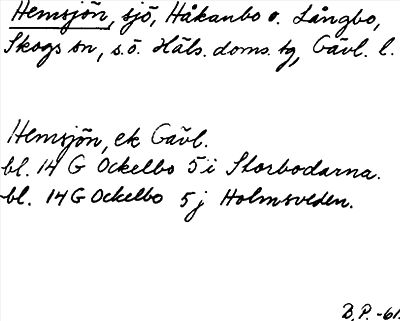 Hemsjön, sjö, Håkanbo o. Långbo,
Skogs sn, s.ö. Häls. doms. tg, Gävl. l.
Hemsjön, ek Gävl.
bl. 14 G Ockelbo 5 i Storbodarna.
bl. 14 G Ockelbo 5 j Holmsveden.
B.P. -61.